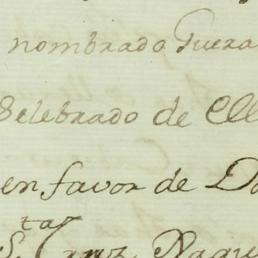 nombrado Guera
Selebrado de Ell
en favor de Do
S.ta Cruz Naque